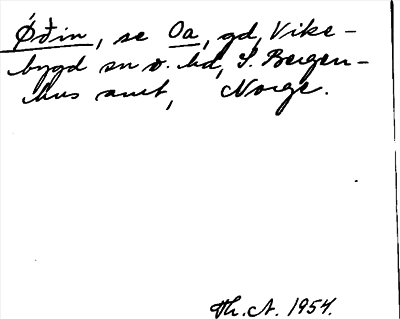 Óðin, se Oa, gd, Vike-
bygd sn o. hd, S. Bergen-
hus amt, Norge.
Th. A. 1954.